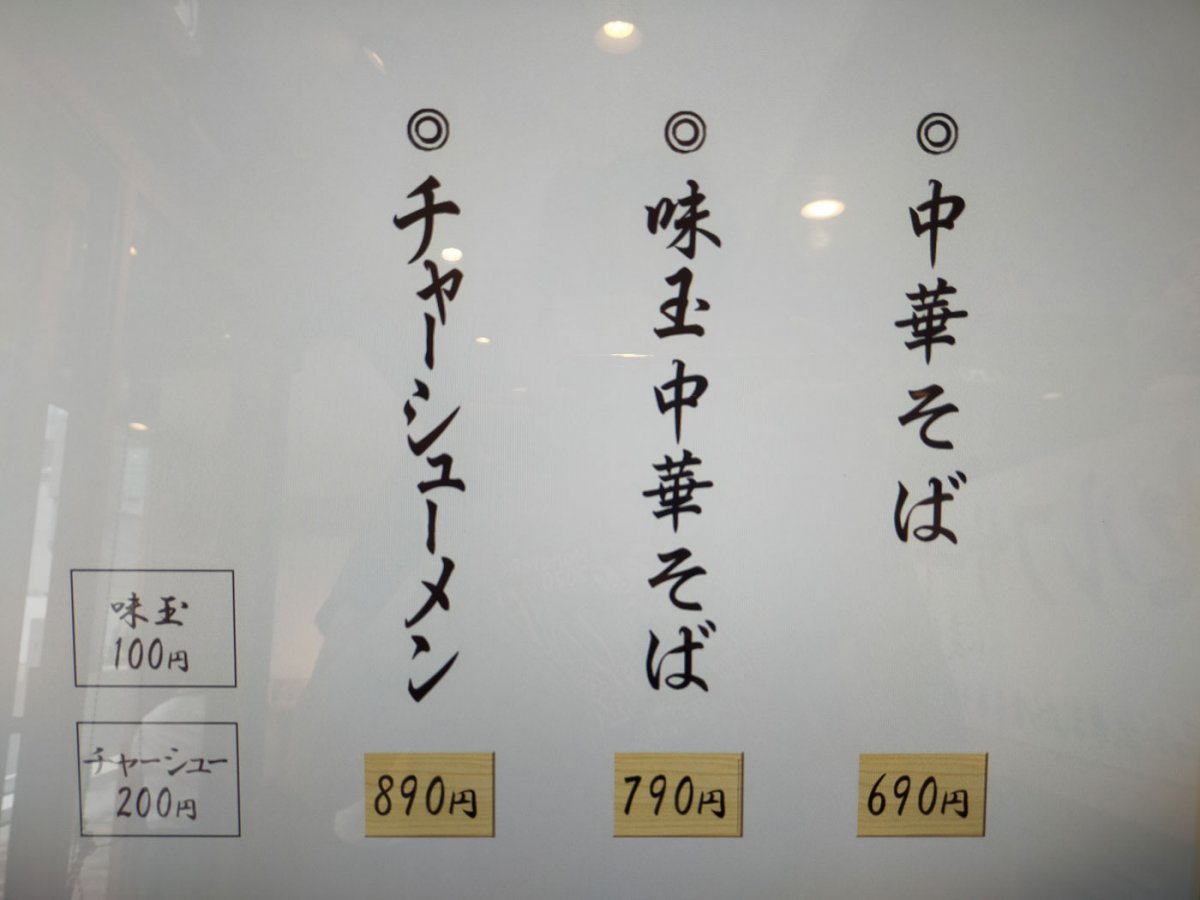 ◎中華そば
690円
◎味玉中華そば
790円
◎チャーシューメン
890円
味玉
100円
チャーシュー
200円